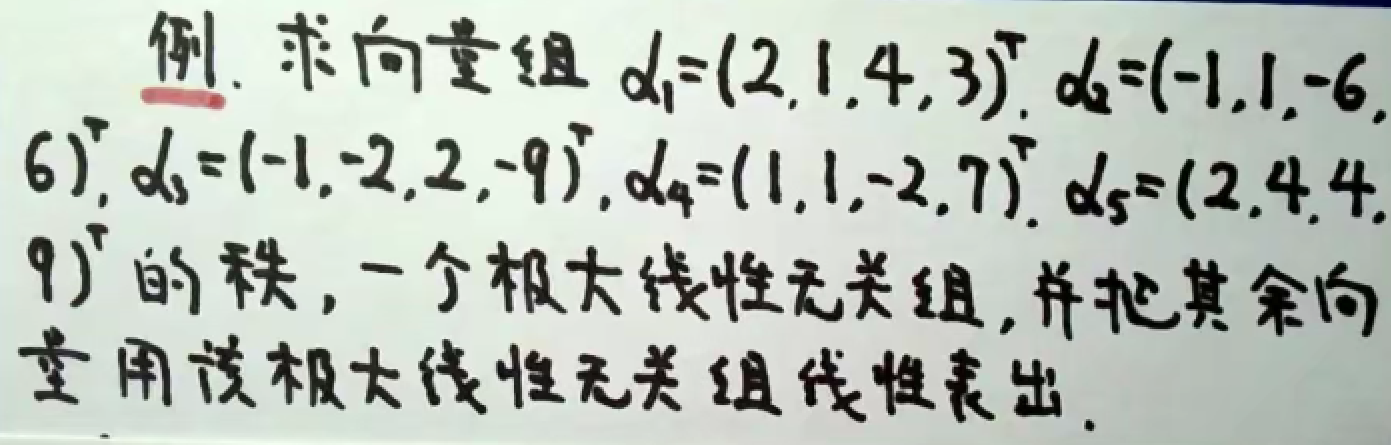 例. 求向量组 α₁=(2,1,4,3)ᵀ, α₂=(-1,1,-6,
6)ᵀ, α₃=(-1,-2,2,-9)ᵀ, α₄=(1,1,-2,7)ᵀ, α₅=(2,4,4,
9)ᵀ 的秩,一个极大线性无关组,并把其余向
量用该极大线性无关组线性表出.